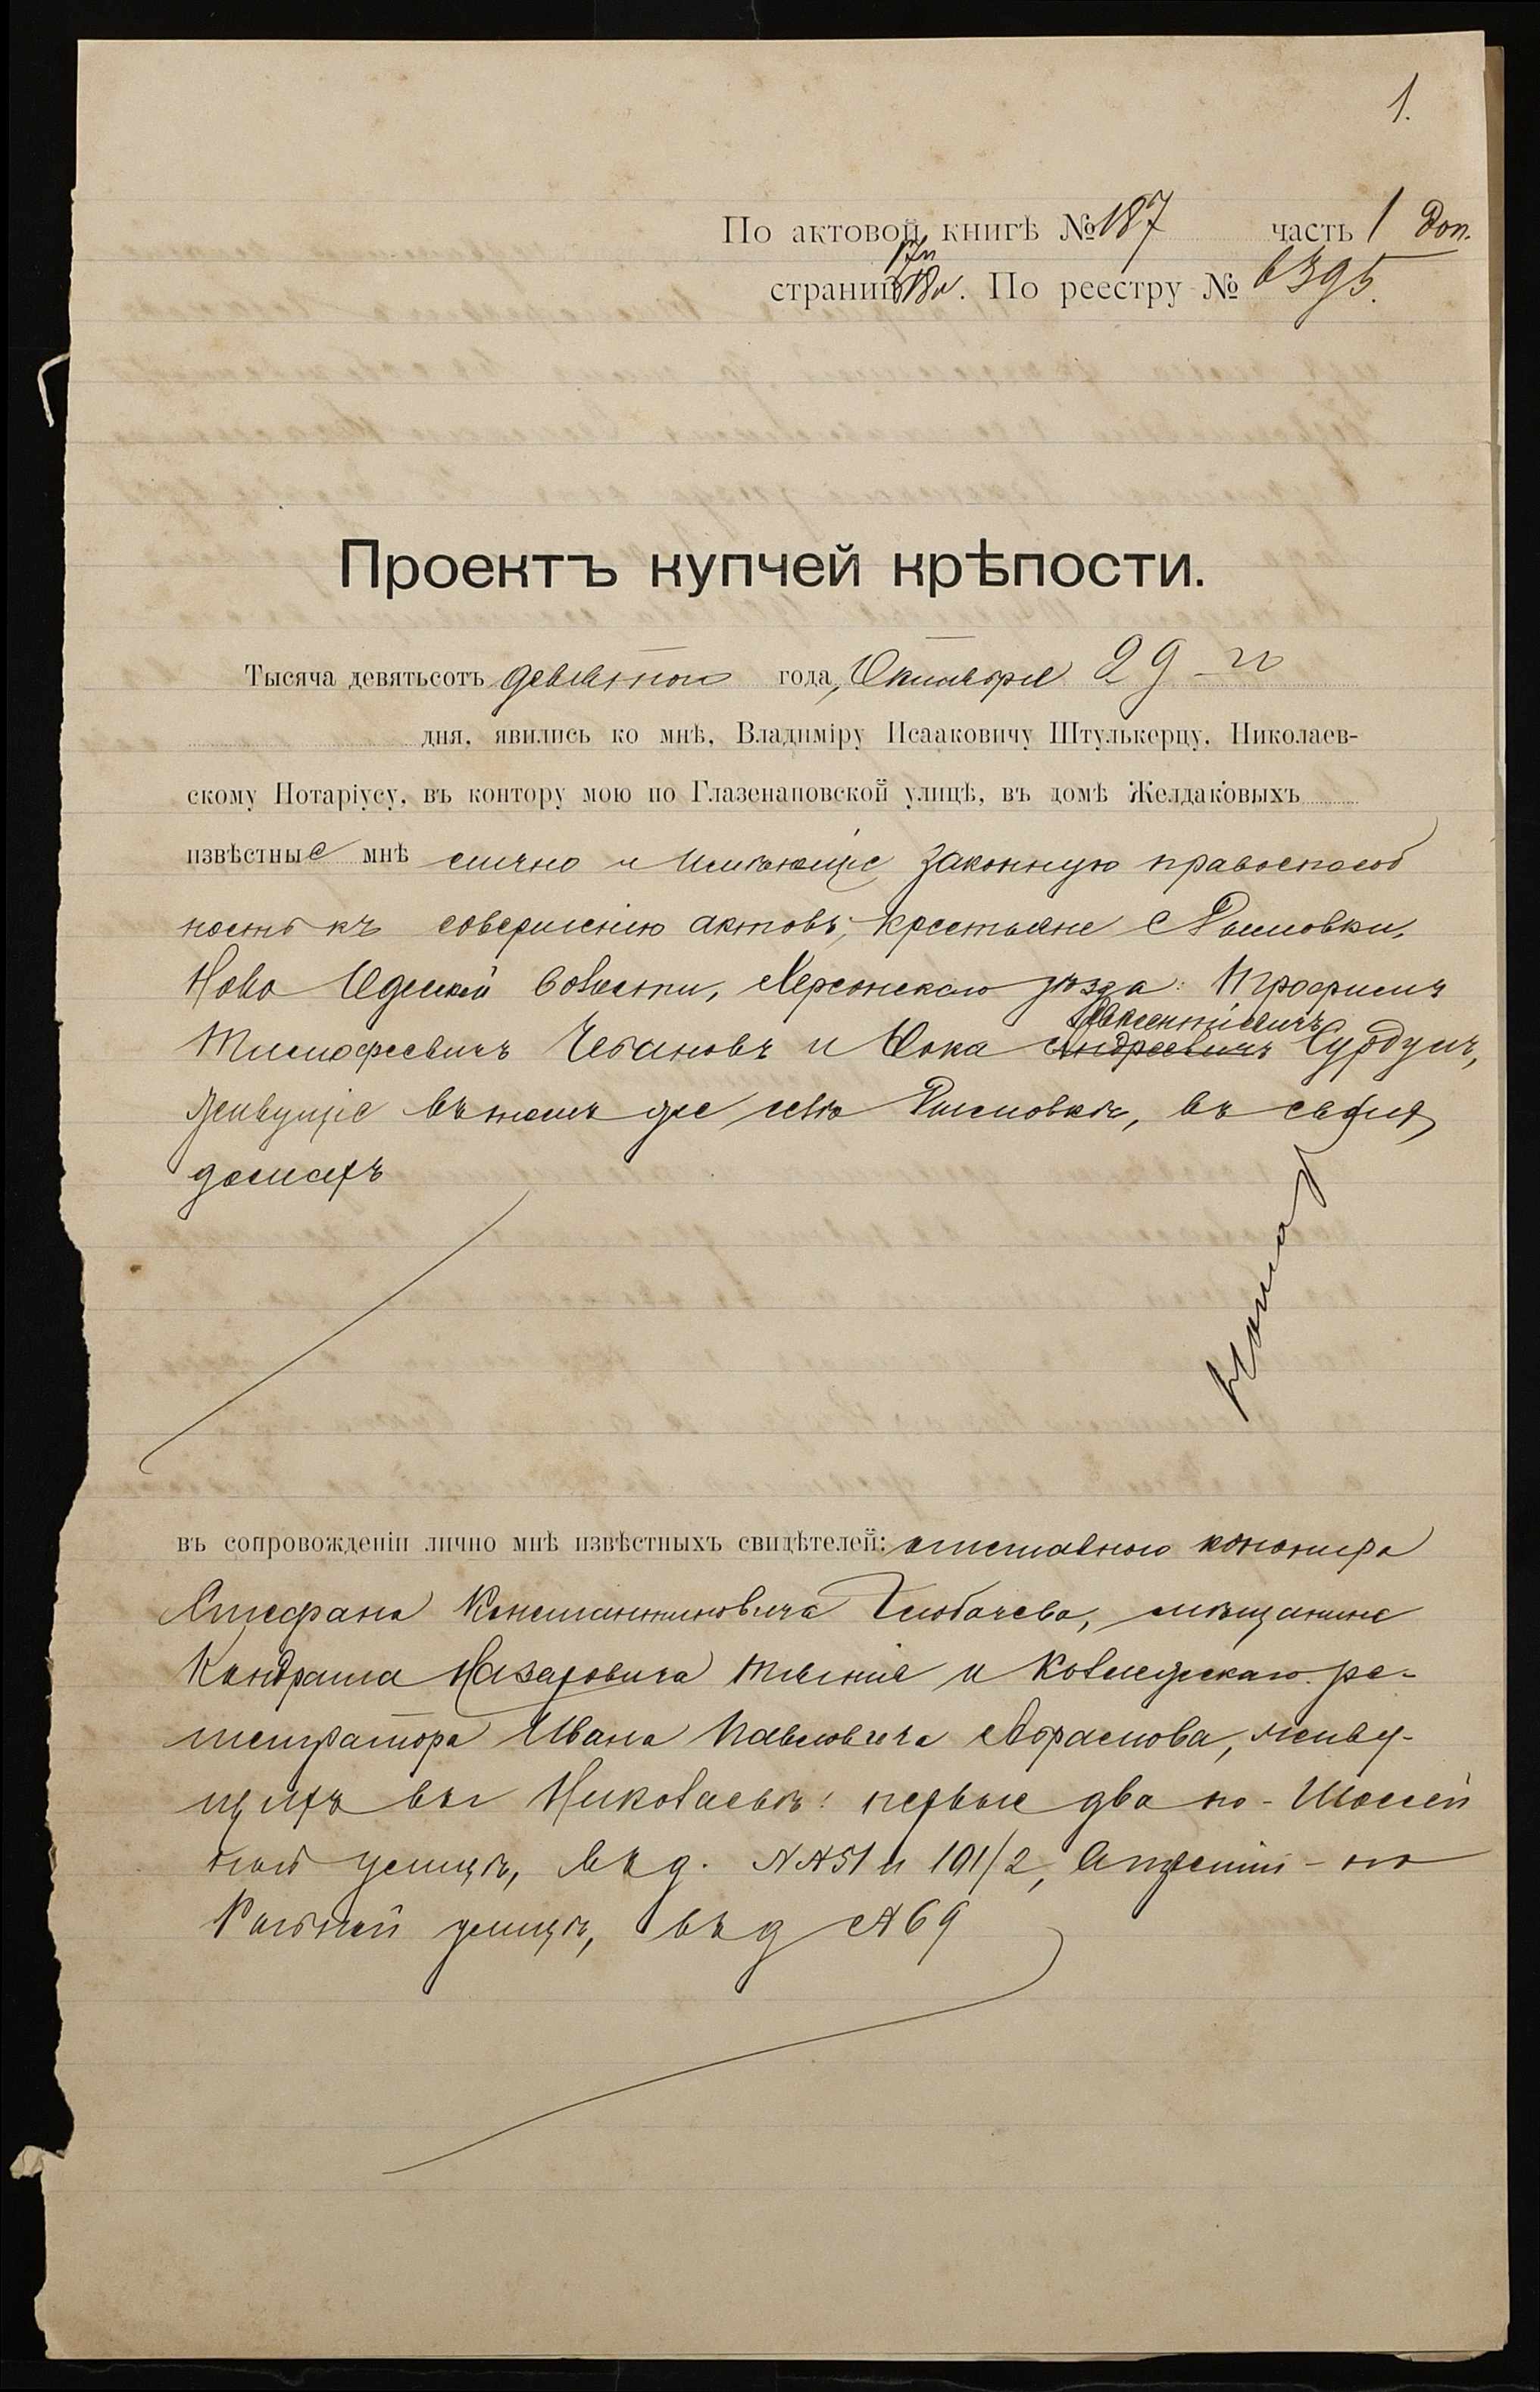 1.
По актовой книгѣ № 187 часть 1 Доп.
страниц 18 и. По реестру № 6395.
Проектъ купчей крѣпости.
Тысяча девятьсотъ девятого года, Октября 29-го
дня, явились ко мнѣ, Владиміру Исааковичу Штулькерцу, Николаев-
скому Нотаріусу, въ контору мою по Глазенаповской улицѣ, въ домѣ Желдаковыхъ
извѣстные мнѣ лично и имѣющіе законную правоспособ
ность къ совершенію актовъ, крестьяне с.
Ново Одесской волости, Херсонскаго уѣзда: Трофимъ
Тимофеевичъ Чебановъ и Фока Авксентіевичъ Андреевичъ Сурдул,
живущіе въ томъ же селѣ въ своихъ
домахъ
въ сопровожденіи лично мнѣ извѣстныхъ свидѣтелей: отставного канонира
Стефана Константиновича мѣщанина
Кондрата Назаровича и Коллежскаго ре-
гистратора Ивана Павловича Абрамова, живу-
щихъ въ г Николаевѣ: первые два по - Шоссей
ной улицѣ, въ д. №№51 и 101/2, а третій - по
улицѣ, въ д №69